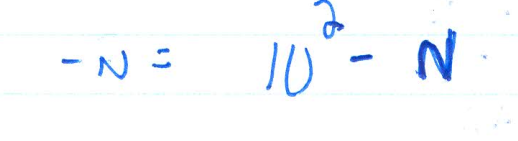 -N = 10² - N